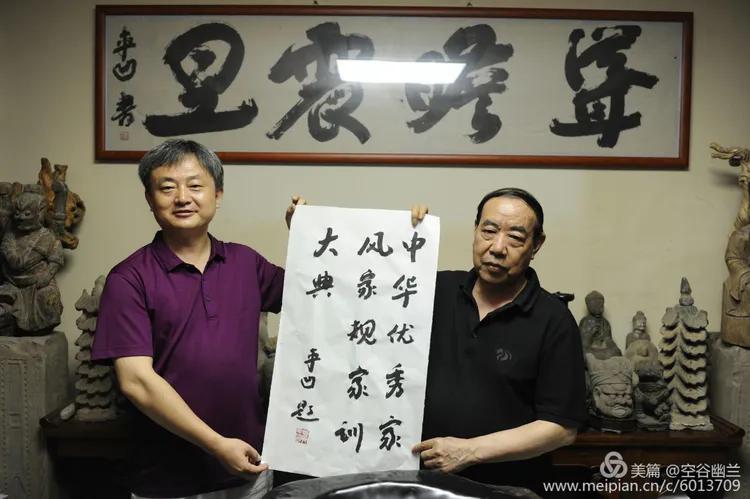 耸瞻震旦
平凹書
中华优秀家
风家规家训
大典
平凹题
美篇 @空谷幽兰
www.meipian.cn/c/6013709